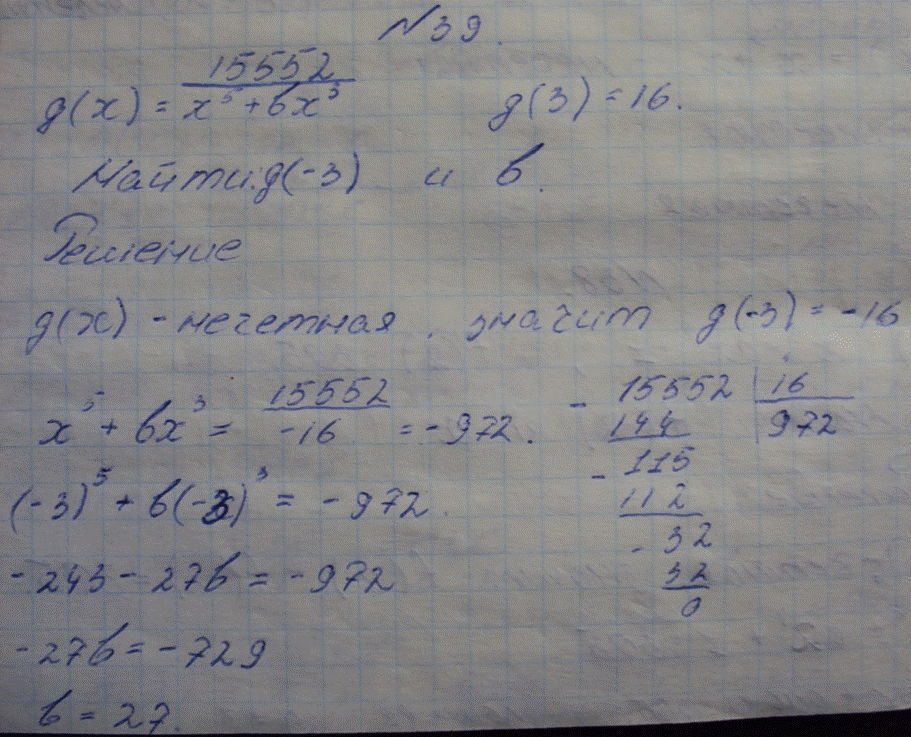 №39.
g(x) = 15552 / x⁵ + bx³   g(3) = 16.
Найти: g(-3) и b.
Решение
g(x) - нечетная, значит g(-3) = -16
x⁵ + bx³ = 15552 / -16 = -972.
(-3)⁵ + b(-3)³ = -972.
-243 - 27b = -972
-27b = -729
b = 27.
- 15552 | 16
144 | 972
- 115
112
- 32
32
0